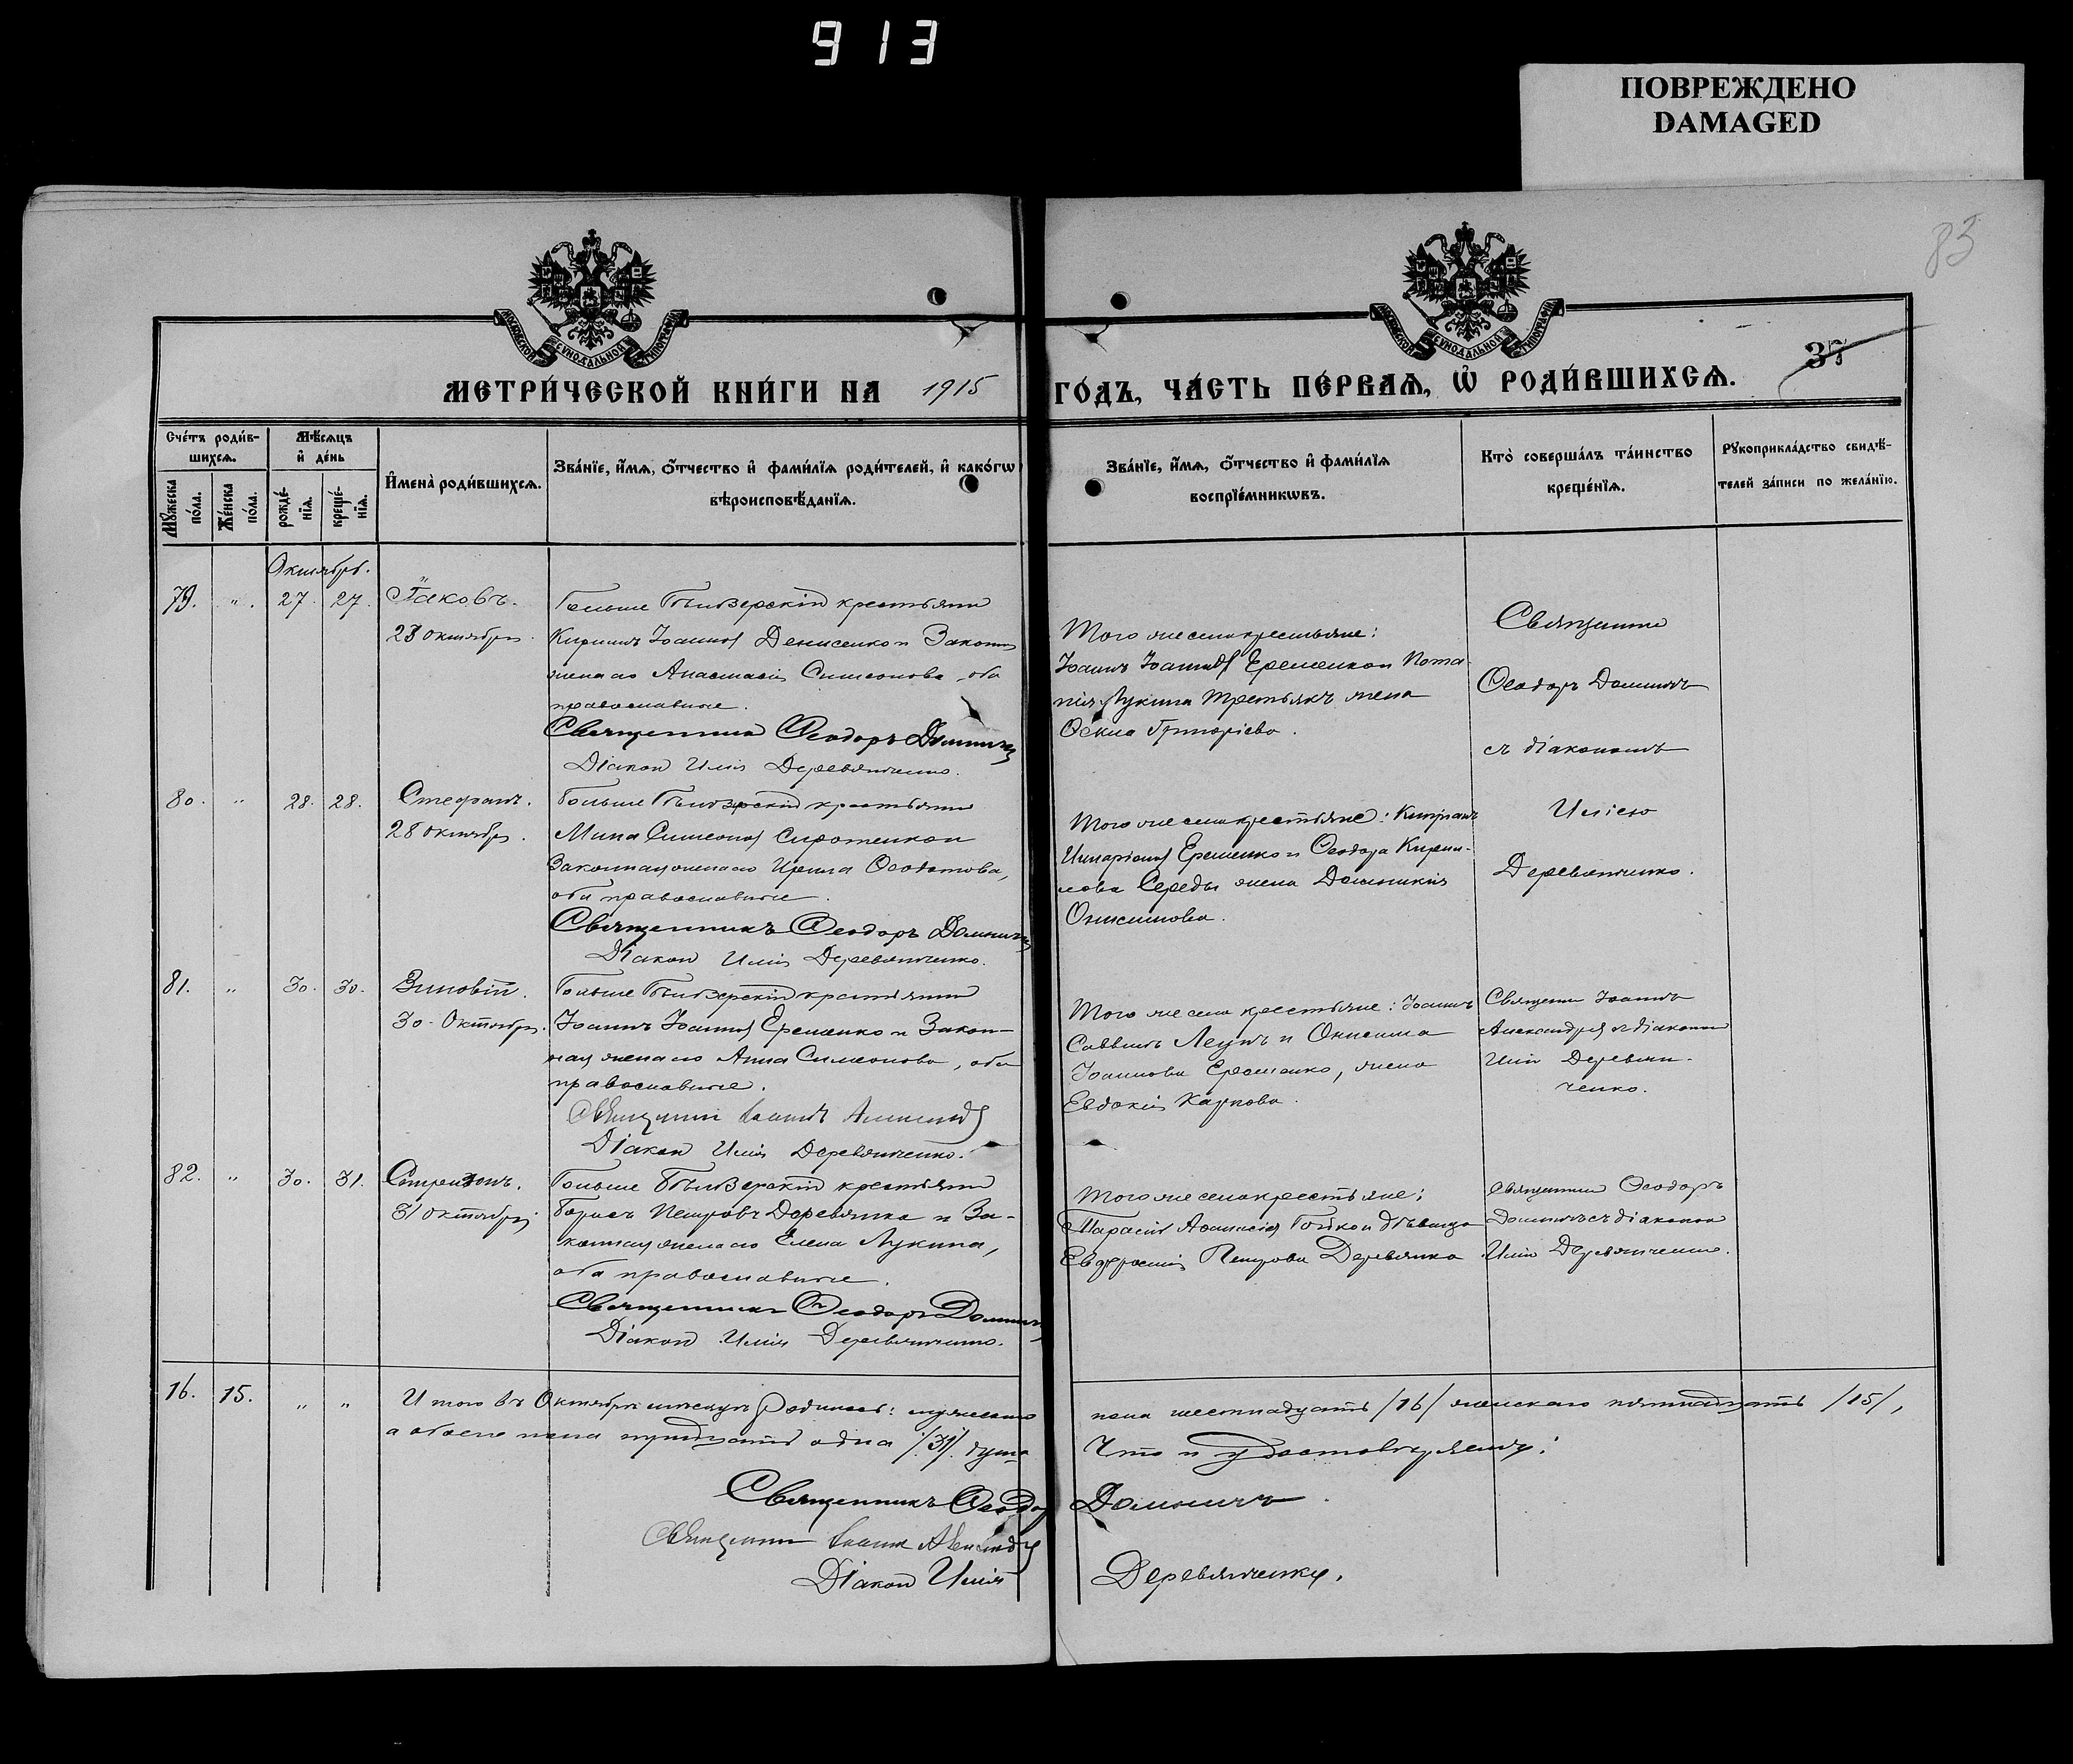 913
ПОВРЕЖДЕНО
DAMAGED
83
МОСКОВСКОЙ СѴНОДАЛЬНОЙ ТИПОГРАФІИ
МОСКОВСКОЙ СѴНОДАЛЬНОЙ ТИПОГРАФІИ
37
МЕТРИ́ЧЕСКОЙ КНИ́ГИ НА 1915 ГО́ДЪ, ЧА́СТЬ ПЕ́РВАѦ, Ѡ РОДИ́ВШИХСѦ.
Сче́тъ роди́в-
шихсѧ.
Мꙋ́жеска по́ла.
Же́нска по́ла.
Мѣ́сѧцъ
и҆ де́нь
рожде́-
нїѧ.
креще́-
нїѧ.
И҆мена̀ роди́вшихсѧ.
Зва́нїе, и҆́мѧ, ѻ҆́тчество и҆ фами́лїѧ роди́телей, и҆ како́гѡ
вѣроисповѣ́данїѧ.
Зва́нїе, и҆́мѧ, ѻ҆́тчество и҆ фами́лїѧ
воспрїе́мникѡвъ.
Кто̀ соверша́лъ та́инство
креще́нїѧ.
Рꙋкоприкла́дство свидѣ́-
телей за́писи по жела́нїю.
Октябрь.
79. " . 27. 27. Іаковъ.
23 октября.
Больше Бѣлозерскій крестьянин
Кириллъ Іоаннов Денисенко и Законн
жена его Анастасія Симеонова, оба
православные.
Священник Ѳеодоръ Домничъ
Діакон Илія Деревянченко.
Того же села крестьяне:
Іоаннъ Іоаннов Еременко и Пота-
пія Лукина Третьякъ жена
Ѳекла Григоріева.
Священник
Ѳеодоръ Домничъ
съ діакономъ
Иліею
Деревянченко.
80. " 28. 28. Стефанъ.
28 октября.
Больше Бѣлозерскій крестьянин
Мина Симеонов Сиротенко и
Законная жена его Ирина Ѳеодотова,
оба православные.
Священникъ Ѳеодоръ Домничъ
Діакон Илія Деревянченко.
Того же села крестьяне: Кипріанъ
Иларіонов Еременко и Ѳеодора Кирил-
лова Середы жена Домникія
Онисимова.
81. " 30. 30. Зиновій.
30 Октября.
Больше Бѣлозерскій крестьянин
Іоаннъ Іоаннов Еременко и Закон-
ная жена его Анна Симеонова, оба
православные.
Священник Іоаннъ Александров
Діакон Илія Деревянченко.
Того же села крестьяне: Іоаннъ
Саввинъ и Онисима
Іоаннова Еременко, жена
Евдокія Карпова.
Священник Іоаннъ
Александров с діакономъ
Илія Деревян-
ченко.
82. " 30. 31.
31 октября
Больше Бѣлозерскій крестьянин
Борисъ Петровъ Деревянка и За-
конная жена его Елена Лукина,
оба православные.
Священникъ Ѳеодоръ Домничъ
Діакон Илія Деревянченко.
Того же села крестьяне:
Тарасій Аѳанасіев Бойко и дѣвица
Евфросинія Петрова Деревянко
Священник Ѳеодоръ
Домничъ съ діакономъ
Илія Деревянченко.
16. 15. " " Итого въ Октябрѣ мѣсяцѣ родилось: мужескаго пола шестнадцать /16/ женскаго пятнадцать /15/,
а обоего пола тридцать одна /31/ душа Что и удостовѣряемъ:
Священникъ Ѳеодоръ Домничъ.
Священник Іоанн Александров
Діакон Илія Деревянченко.